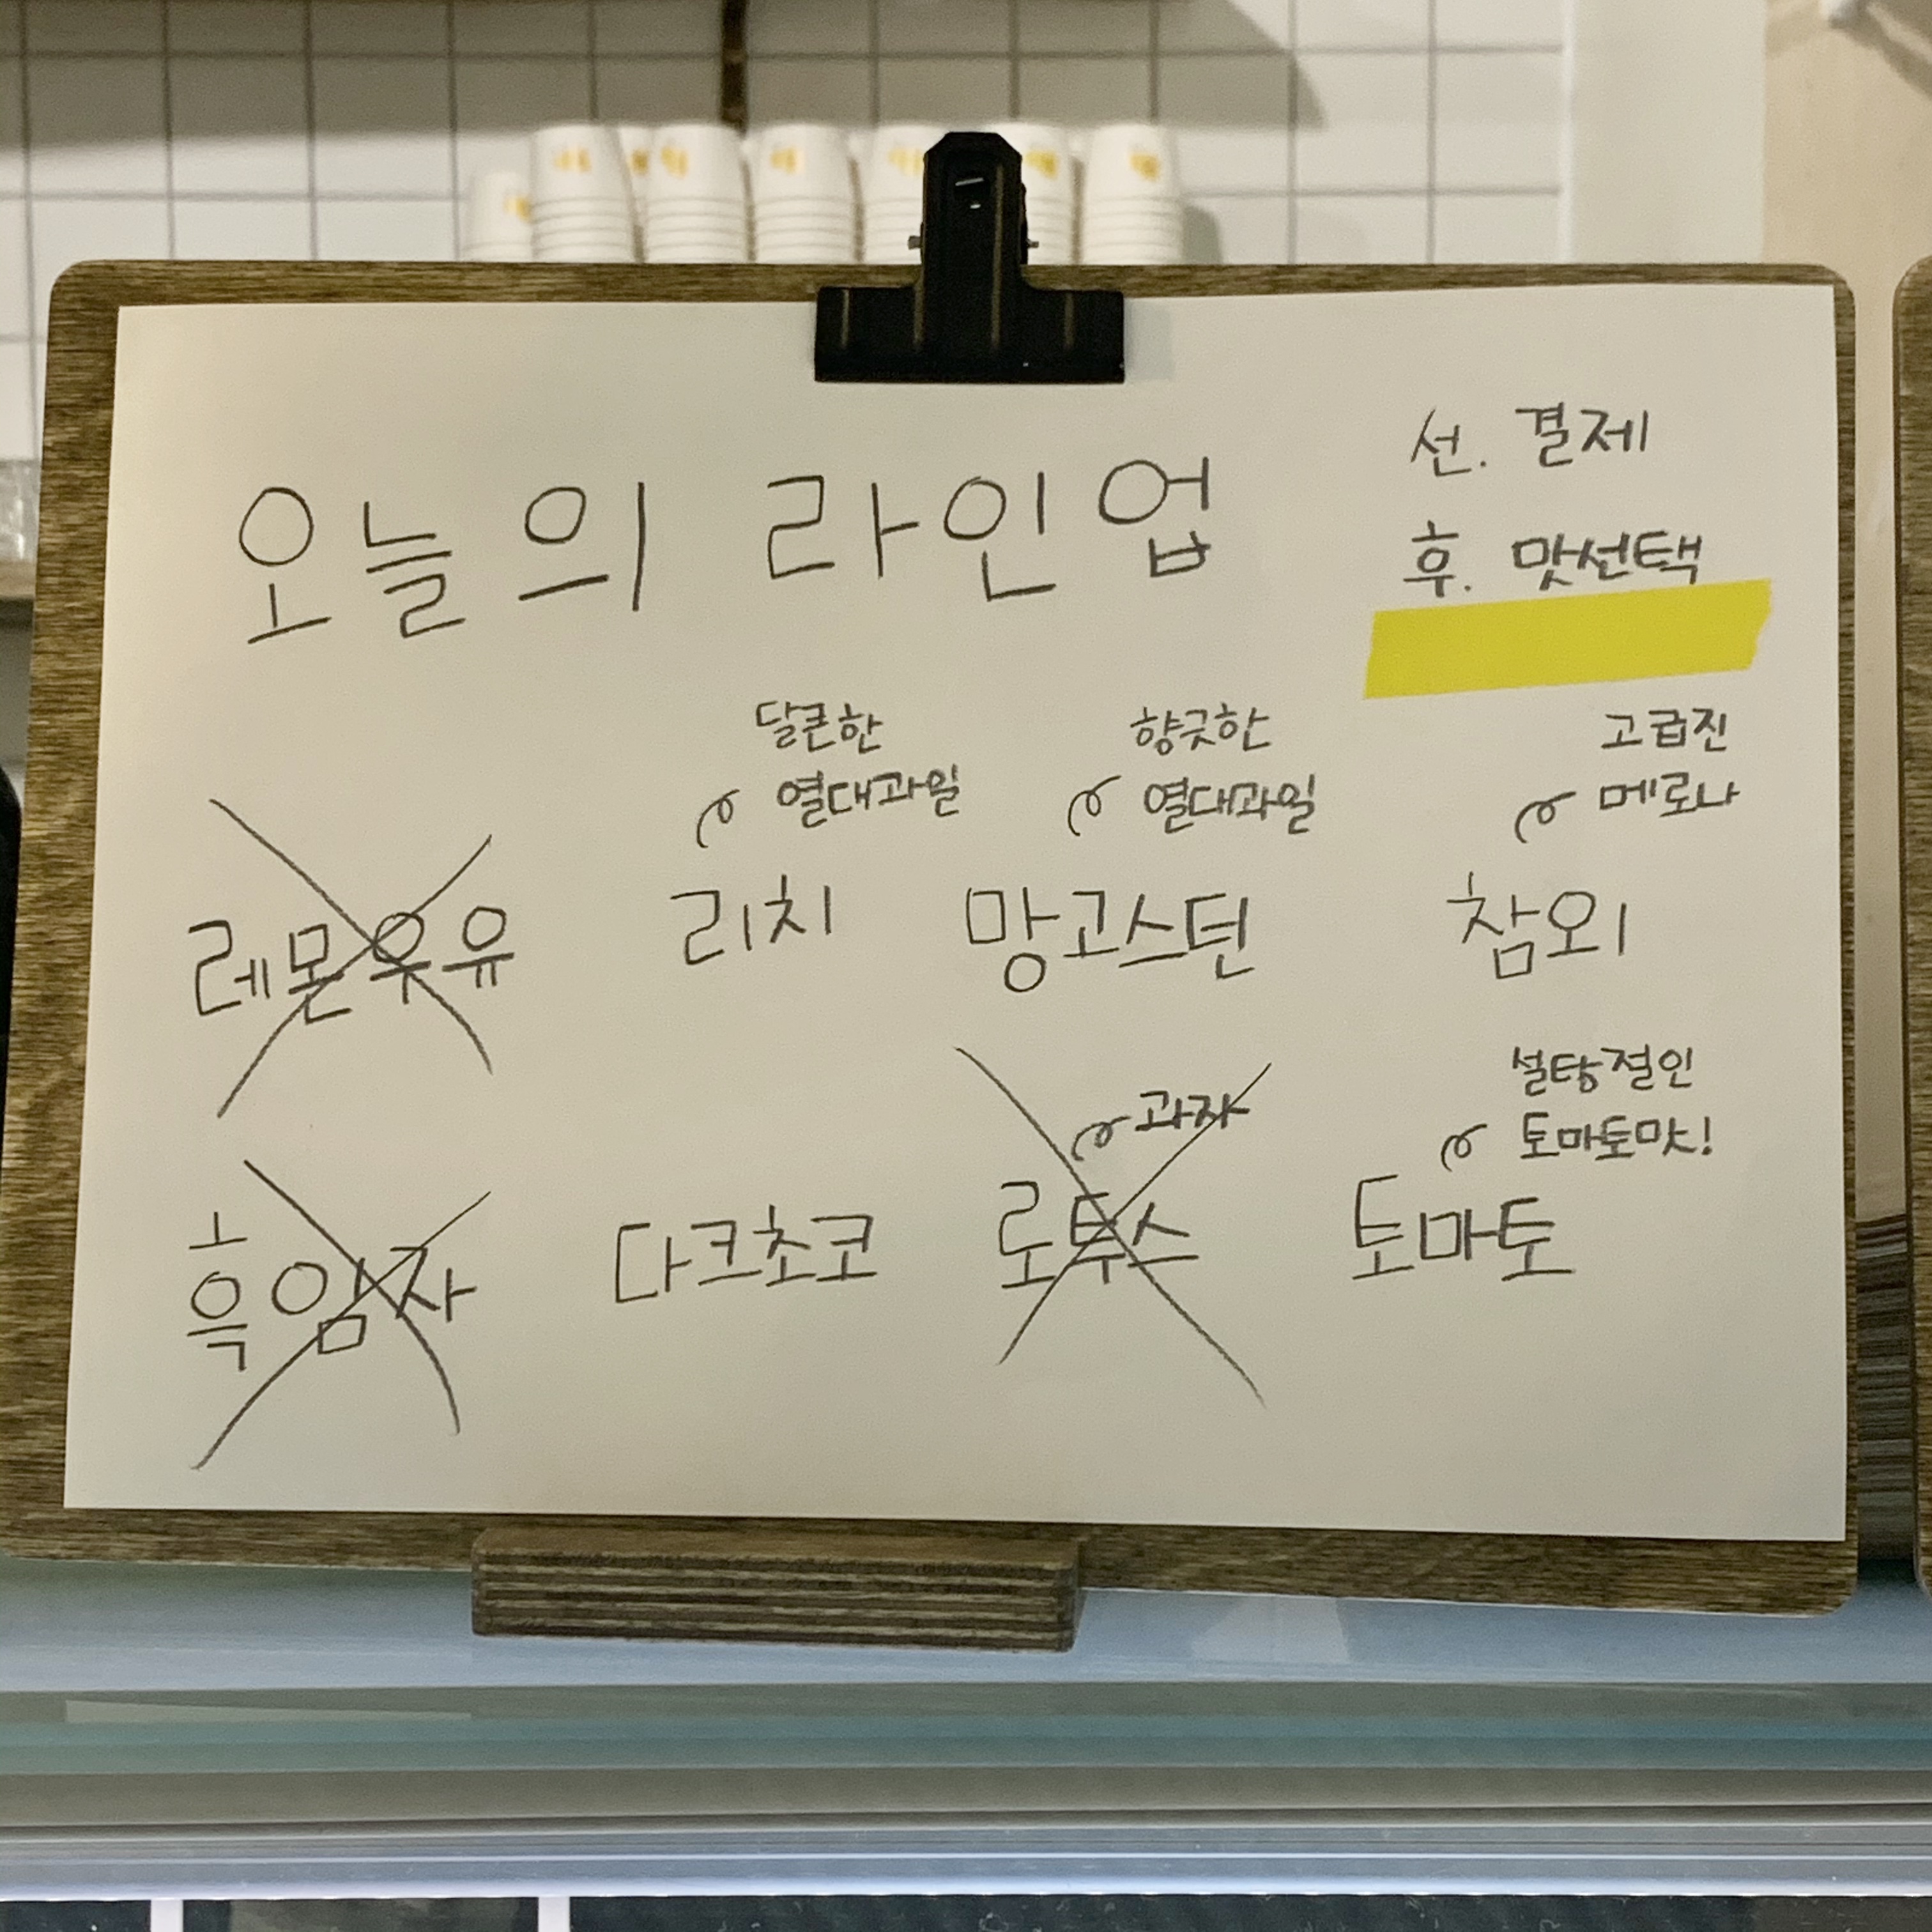 오늘의 라인업
선. 결제
후. 맛선택
레몬우유
달큰한
열대과일
리치
향긋한
열대과일
망고스틴
고급진
메로나
참외
흑임자
다크초코
과자
로투스
설탕절인
토마토맛!
토마토